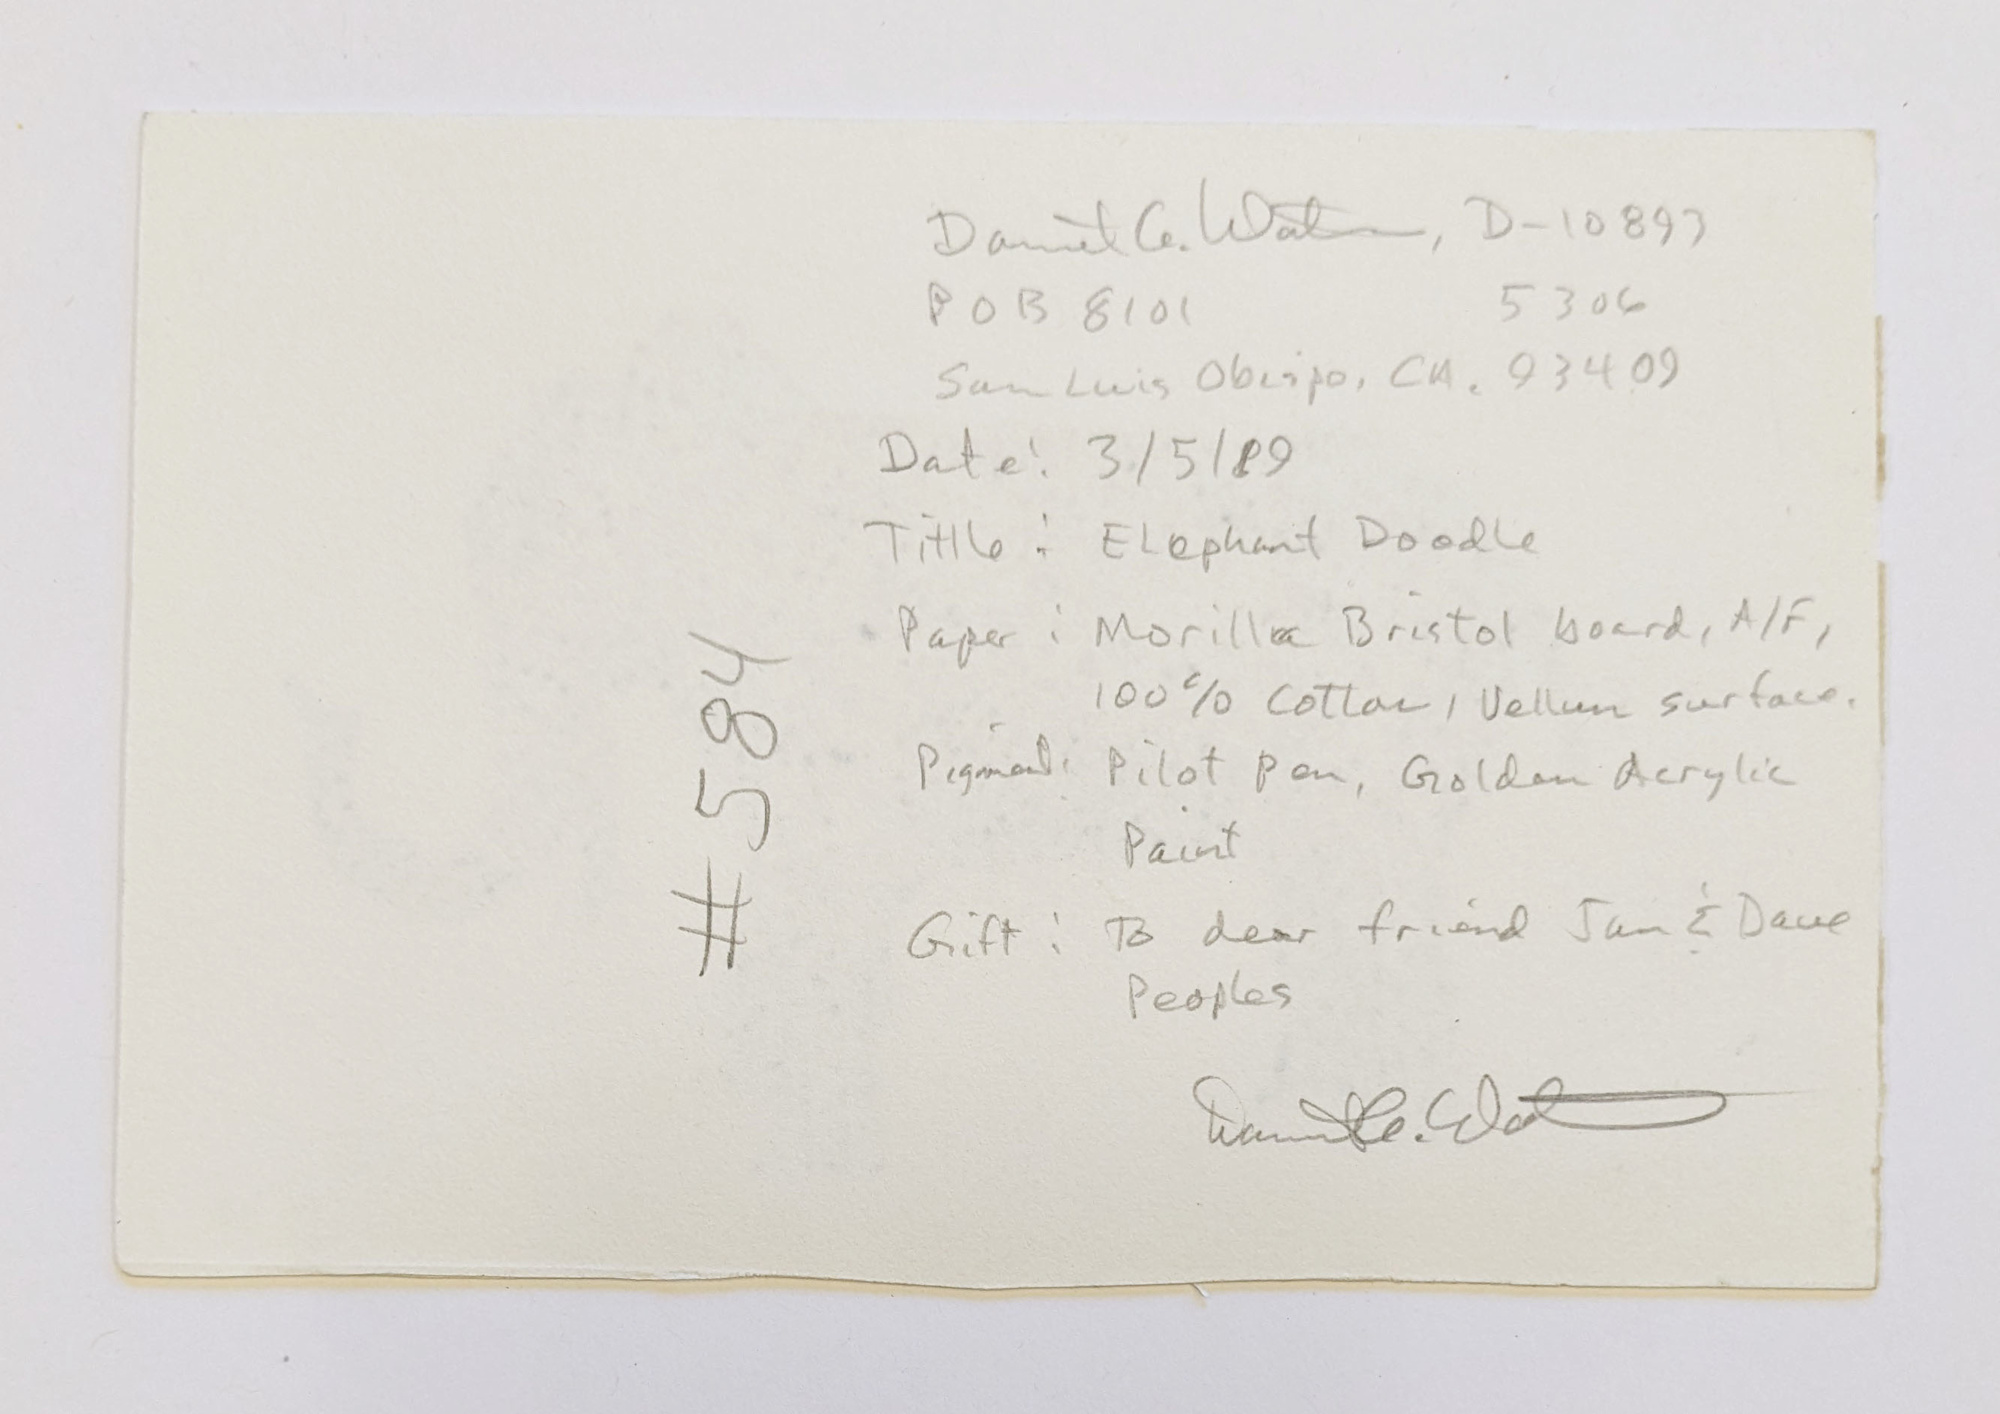 Daniel G. Watson, D-10893
POB 8101 5306
San Luis Obispo, CA. 93409
Date: 3/5/89
Title: Elephant Doodle
Paper: Morilla Bristol board, A/F,
100% Cotton, Vellum surface.
Pigment: Pilot Pen, Golden Acrylic
Paint
Gift: To dear friend Jan & Dave
Peoples
#584